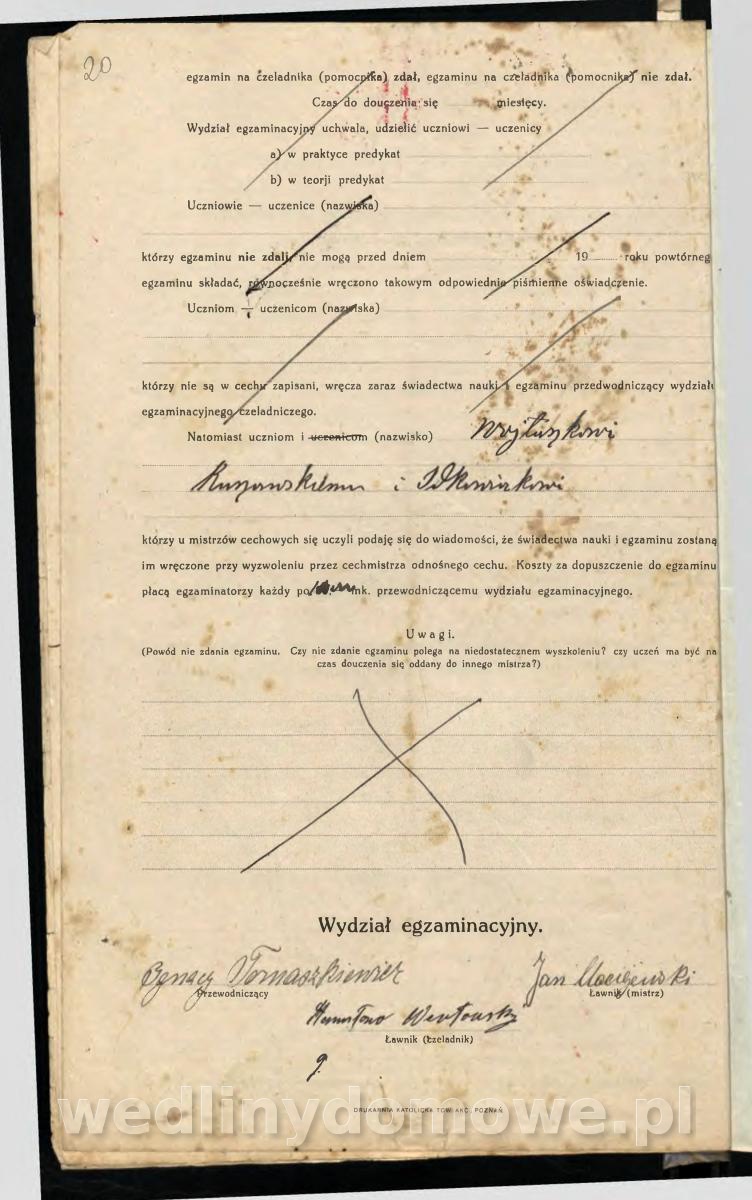 20
egzamin na czeladnika (pomocnika) zdał, egzaminu na czeladnika (pomocnika) nie zdał.
Czas do douczenia się miesięcy.
Wydział egzaminacyjny uchwala, udzielić uczniowi — uczenicy
a) w praktyce predykat
b) w teorji predykat
Uczniowie — uczenice (nazwiska)
którzy egzaminu nie zdali, nie mogą przed dniem 19 roku powtórneg
egzaminu składać, równocześnie wręczono takowym odpowiednie piśmienne oświadczenie.
Uczniom — uczenicom (nazwiska)
którzy nie są w cechu zapisani, wręcza zaraz świadectwa nauki i egzaminu przedwodniczący wydziału
egzaminacyjnego czeladniczego.
Natomiast uczniom i uczenicom (nazwisko) Wojtuszkowi
i
którzy u mistrzów cechowych się uczyli podaję się do wiadomości, że świadectwa nauki i egzaminu zostaną
im wręczone przy wyzwoleniu przez cechmistrza odnośnego cechu. Koszty za dopuszczenie do egzaminu
płacą egzaminatorzy każdy po mk. przewodniczącemu wydziału egzaminacyjnego.
Uwagi.
(Powód nie zdania egzaminu. Czy nie zdanie egzaminu polega na niedostatecznem wyszkoleniu? czy uczeń ma być na
czas douczenia się oddany do innego mistrza?)
Wydział egzaminacyjny.
Ignacy Tomaszkiewicz Jan Maciejewski
Przewodniczący Ławnik (mistrz)
Ławnik (czeladnik)
DRUKARNIA KATOLICKA TOW. AKC., POZNAŃ
wedlinydomowe.pl